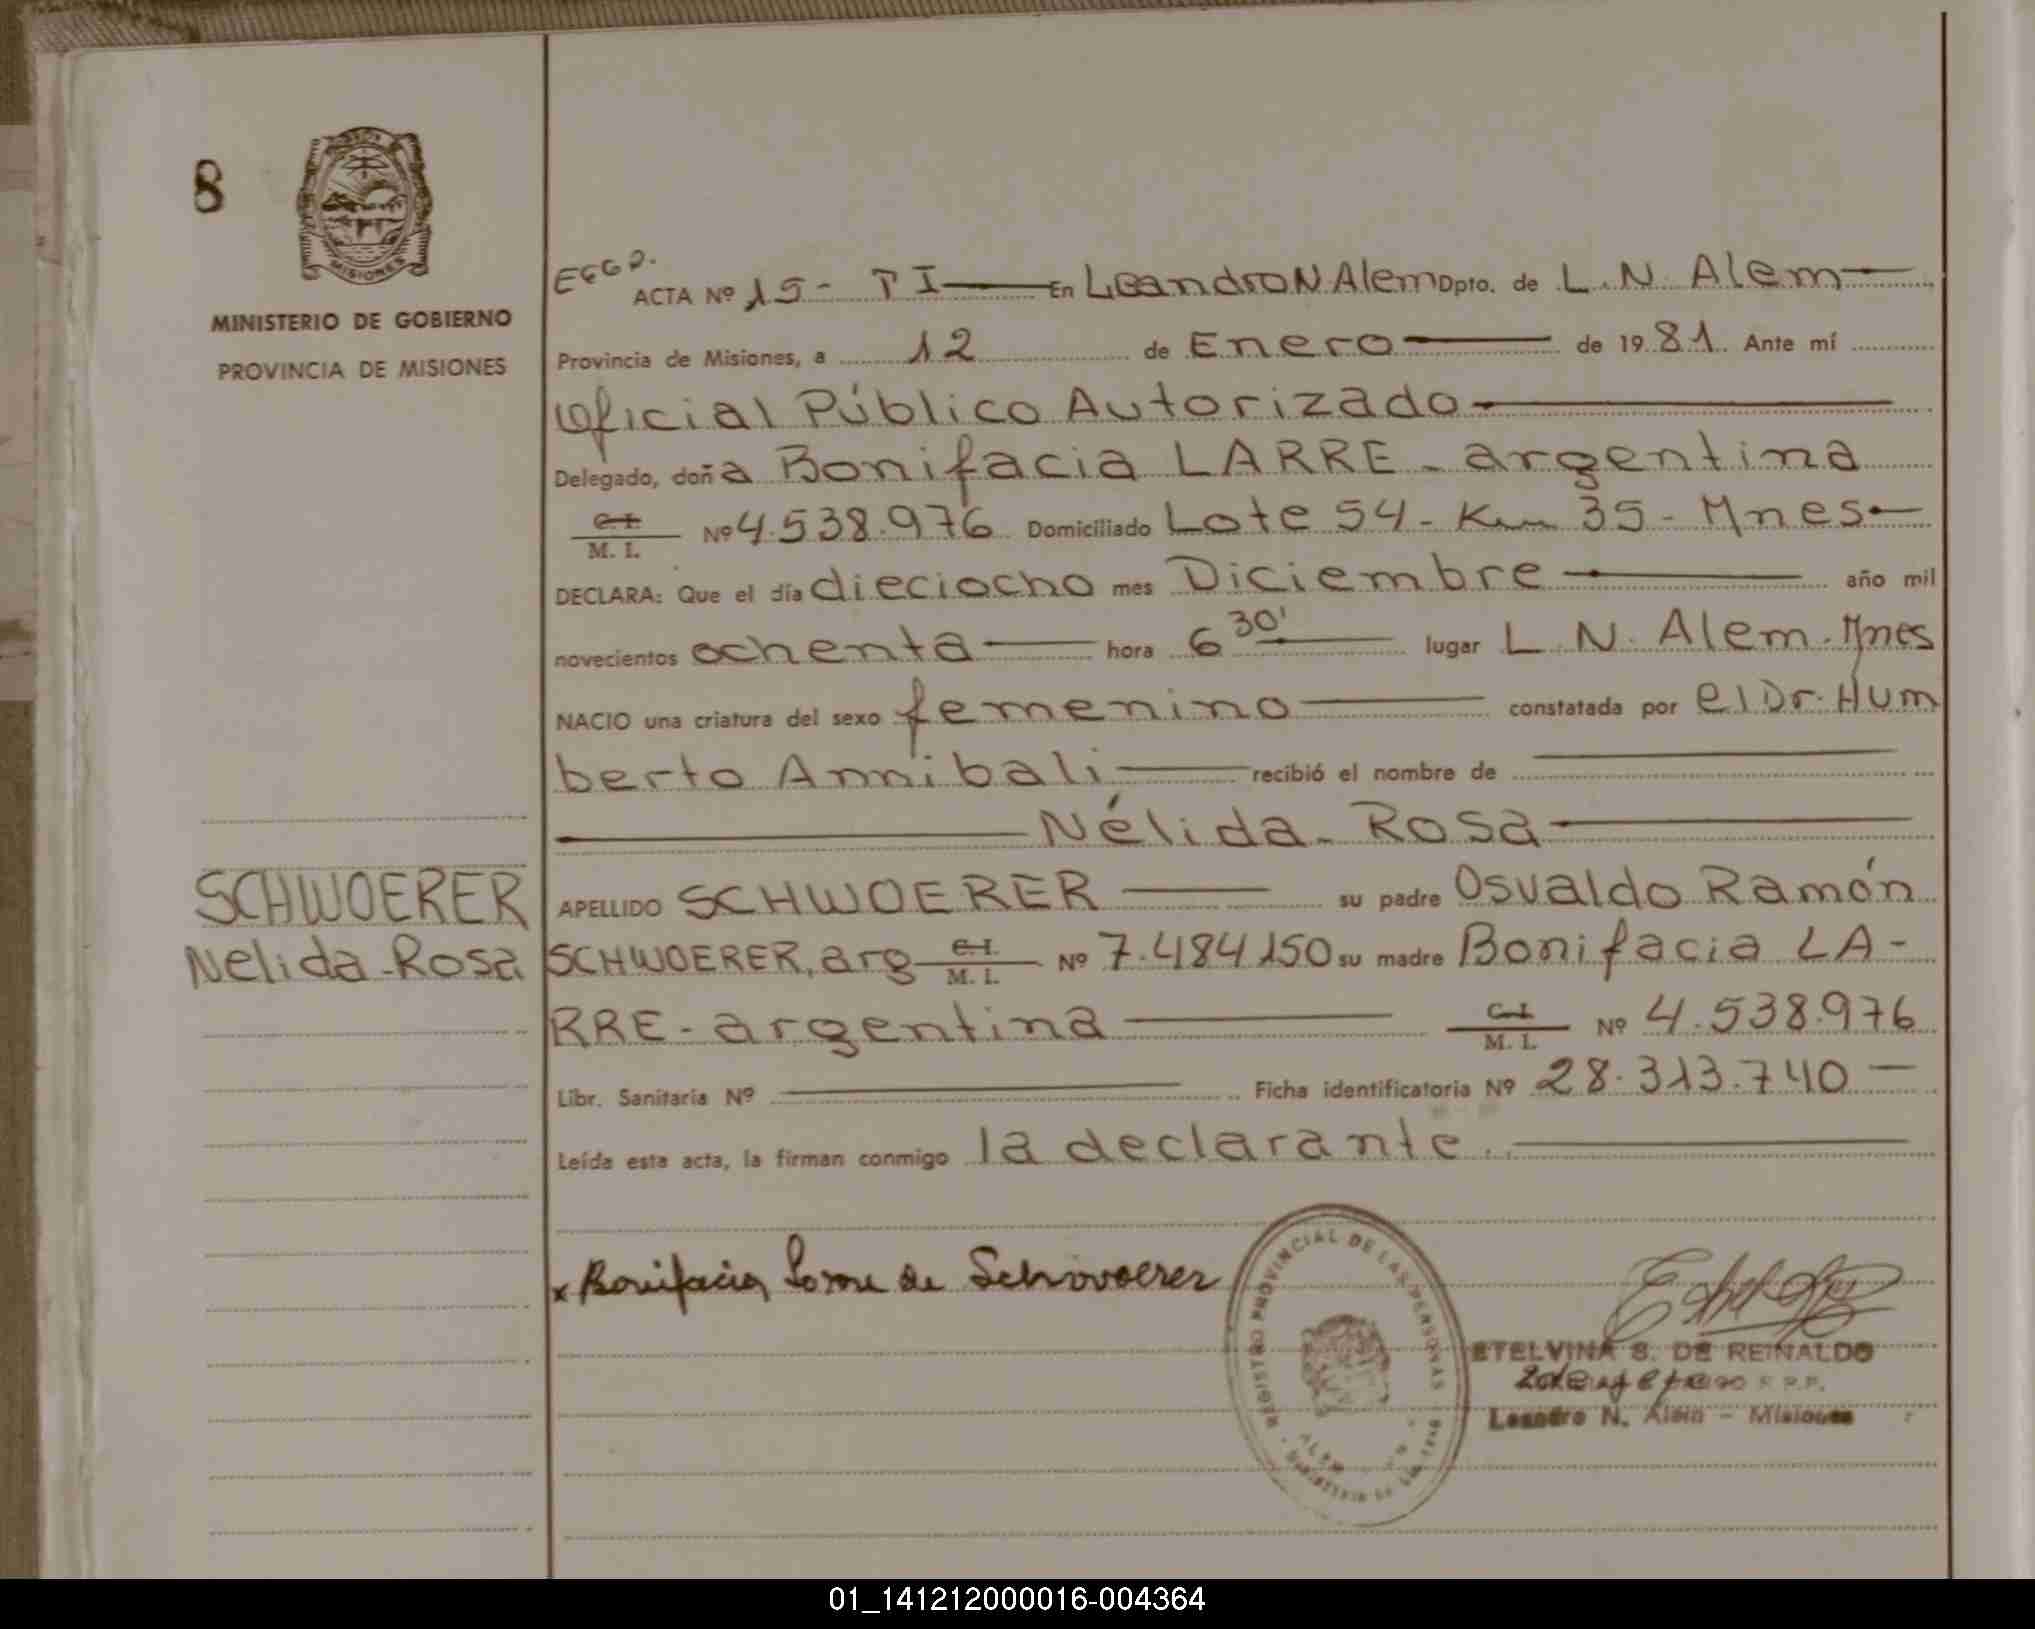 8
MISIONES
MINISTERIO DE GOBIERNO
PROVINCIA DE MISIONES
ACTA Nº 15 - T I — En Leandro N. Alem Dpto. de L. N. Alem —
Provincia de Misiones, a 12 de Enero — de 1981. Ante mí
Oficial Público Autorizado —
Delegado, doña Bonifacia LARRE - argentina
C.I. / M. I. Nº 4.538.976 Domiciliado Lote 54 - Km 35 - Mnes —
DECLARA: Que el día dieciocho mes Diciembre — año mil
novecientos ochenta — hora 6 30' — lugar L. N. Alem. Mnes
NACIO una criatura del sexo femenino — constatada por el Dr. Hum
berto Annibali — recibió el nombre de —
— Nélida - Rosa —
SCHWOERER
Nelida - Rosa
APELLIDO SCHWOERER — su padre Osvaldo Ramón
SCHWOERER, arg — C.I. / M. I. Nº 7.484.150 su madre Bonifacia LA-
RRE - argentina — C.I. / M. I. Nº 4.538.976
Libr. Sanitaria Nº — Ficha identificatoria Nº 28.313.740 —
Leída esta acta, la firman conmigo la declarante. —
x Bonifacia de Schwoerer
REGISTRO PROVINCIAL DE LAS PERSONAS
ALEM
ETELVINA S. DE REINALDO
Leandro N. Alem - Misiones
01_141212000016-004364